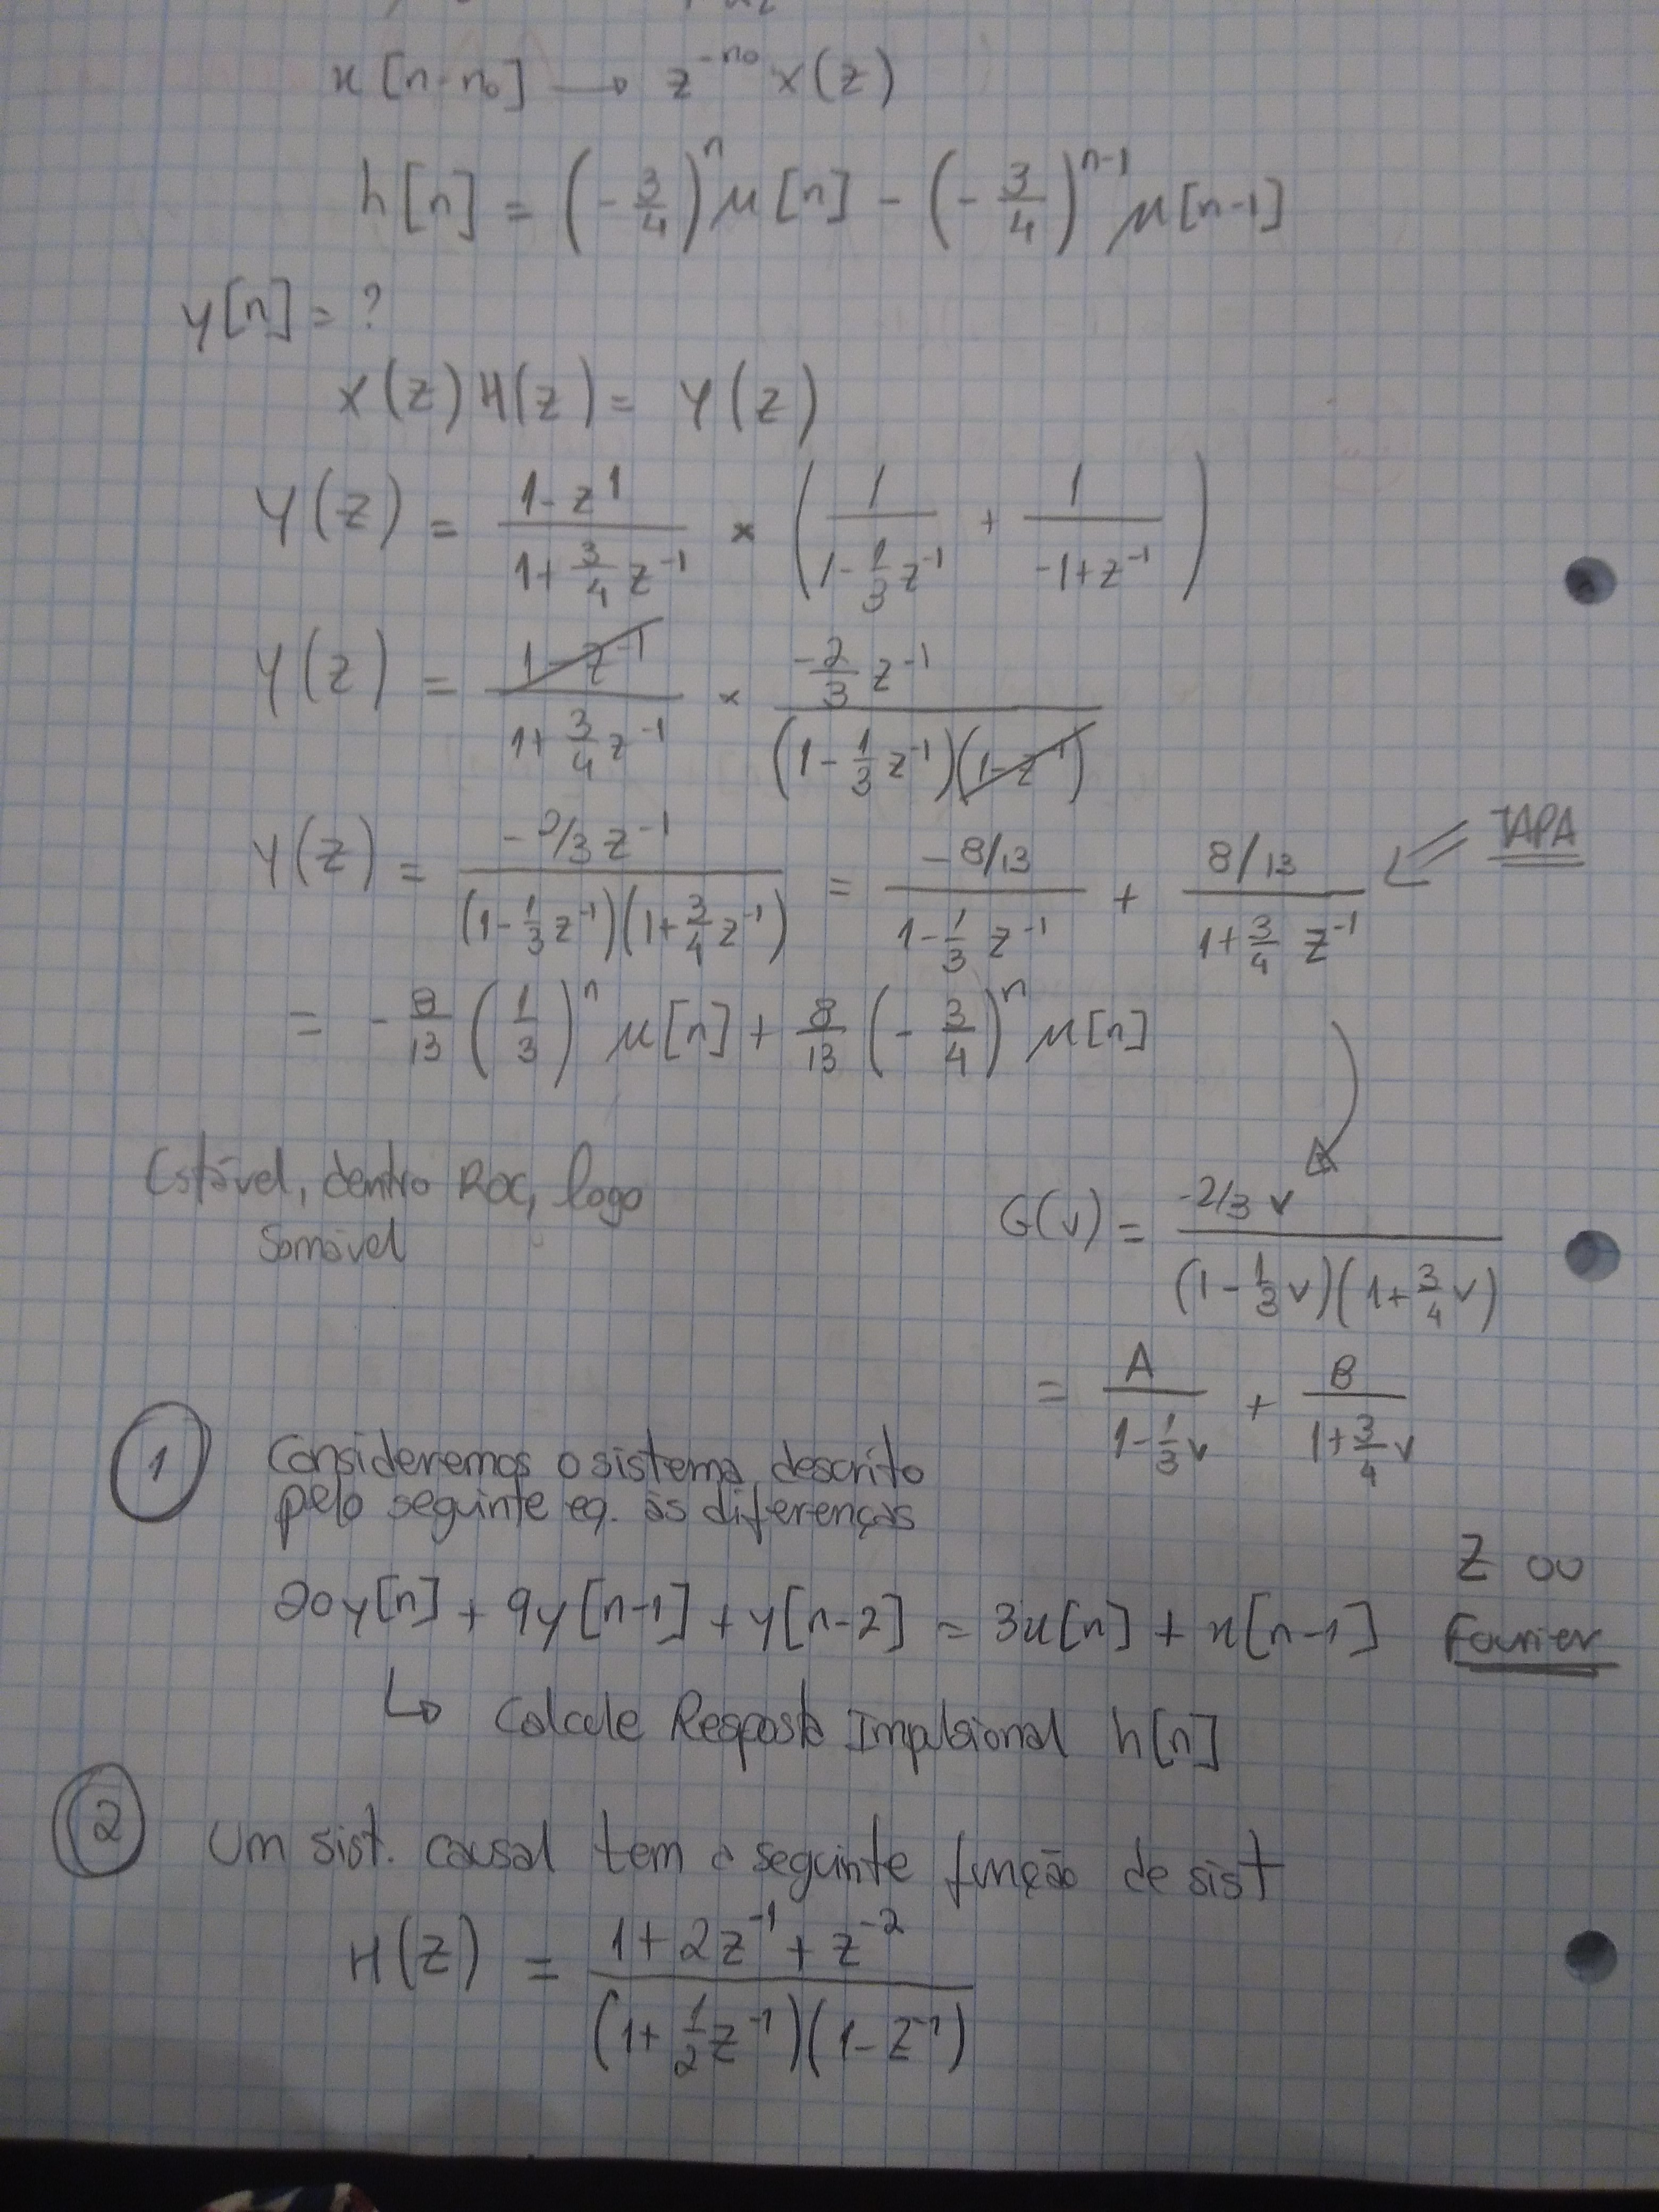 x[n-n₀] → z^-n₀ X(z)
h[n] = (-3/4)^n μ[n] - (-3/4)^(n-1) μ[n-1]
y[n] = ?
X(z) H(z) = Y(z)
Y(z) = (1-z^1)/(1+3/4 z^-1) × (1/(1-1/3 z^-1) + 1/(-1+z^-1))
Y(z) = (1-z^-1)/(1+3/4 z^-1) × (-2/3 z^-1)/((1-1/3 z^-1)(1-z^-1))
Y(z) = (-2/3 z^-1)/((1-1/3 z^-1)(1+3/4 z^-1)) = (-8/13)/(1-1/3 z^-1) + (8/13)/(1+3/4 z^-1) TAPA
= -8/13 (1/3)^n μ[n] + 8/13 (-3/4)^n μ[n]
Estável, dentro ROC, logo
Somável
G(v) = (-2/3 v)/((1-1/3 v)(1+3/4 v))
= A/(1-1/3 v) + B/(1+3/4 v)
1 Consideremos o sistema descrito
pelo seguinte eq. às diferenças
20y[n] + 9y[n-1] + y[n-2] = 3x[n] + x[n-1]
Z ou
Fourier
↳ Calcule Resposta Impulsional h[n]
2 Um sist. causal tem a seguinte função de sist
H(Z) = (1+2z^-1+z^-2)/((1+1/2 z^-1)(1-z^-1))